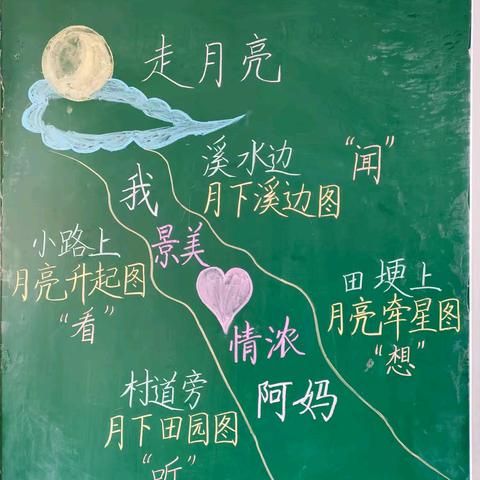 走月亮
溪水边
"闻"
月下溪边图
我
景美
小路上
月亮升起图
"看"
田埂上
月亮牵星图
"想"
情浓
阿妈
村道旁
月下田园图
"听"